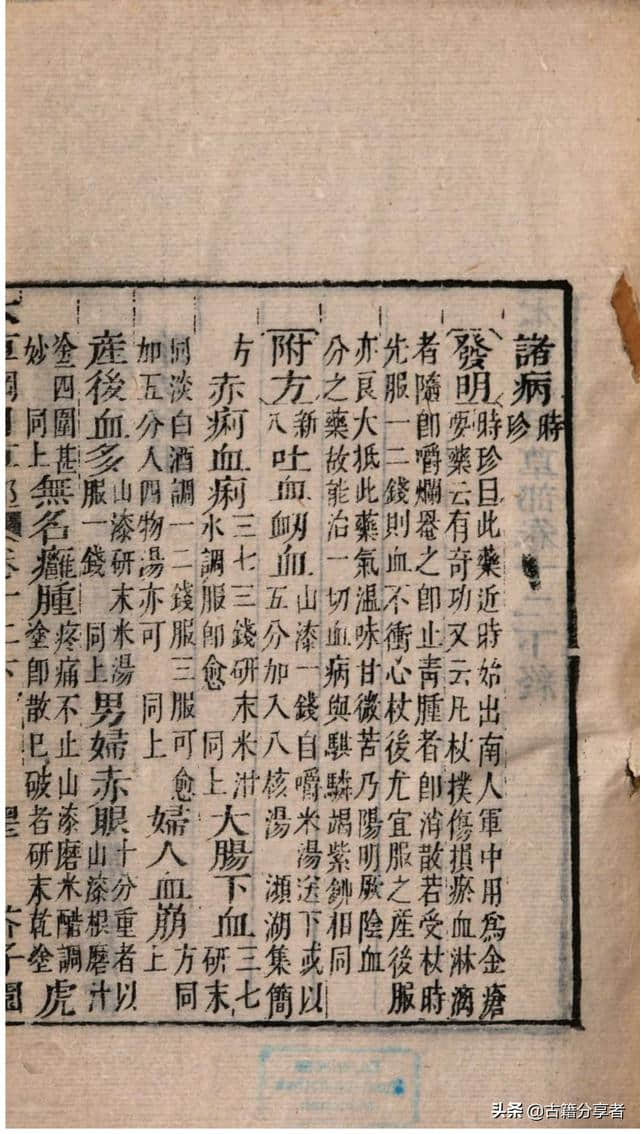 諸病時珍
發明時珍曰此藥近時始出南人軍中用爲金瘡
要藥云有奇功又云凡杖撲傷損瘀血淋漓
者隨卽嚼爛罨之卽止青腫者卽消散若受杖時
先服一二錢則血不衝心杖後尤宜服之産後服
亦良大抵此藥氣溫味甘微苦乃陽明厥陰血
分之藥故能治一切血病與騏驎竭紫鉚相同
附方新八吐血衂血山漆一錢自嚼米湯送下或以
五分加入八核湯 瀕湖集簡
方 赤痢血痢三七三錢研末米泔水調服卽愈 同上 大腸下血三七研末
同淡白酒調一二錢服三服可愈
加五分入四物湯亦可 同上 婦人血崩方同上
産後血多山漆研末米湯服一錢 同上 男婦赤眼十分重者以山漆根磨汁
塗四圍甚妙 同上 無名癰腫疼痛不止山漆磨米醋調塗卽散已破者研末乾塗 虎
头条 @古籍分享者